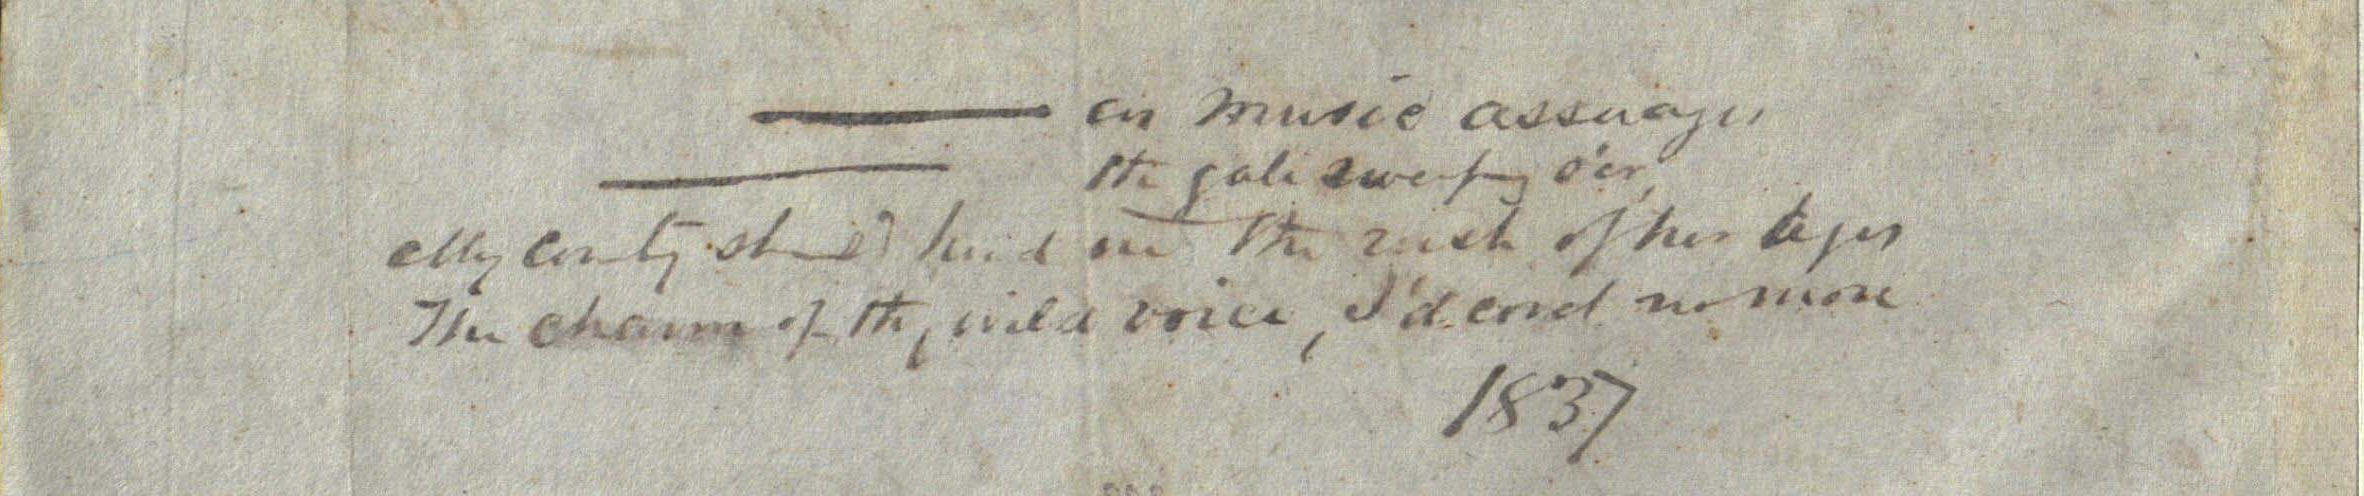 —— as music assuages
—— the gale sweeping o'er
My country should lend me the rush of her
The charm of thy wild voice, I'd no more
1837